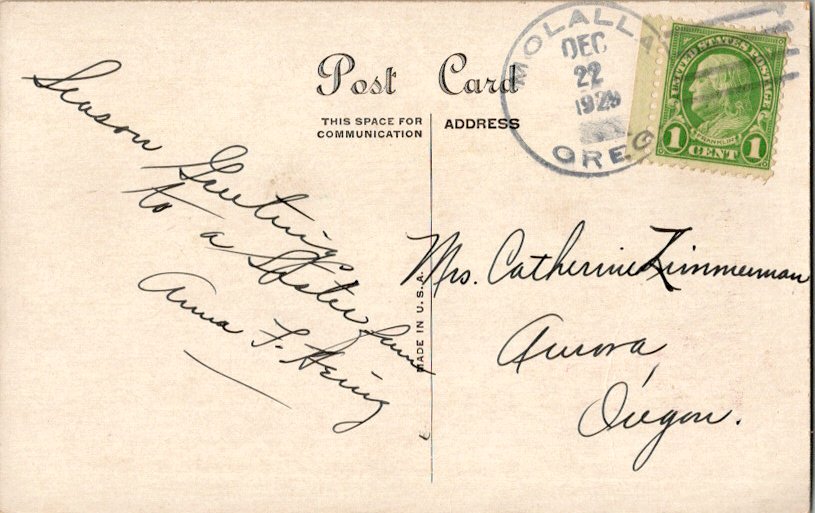 Post Card
THIS SPACE FOR
COMMUNICATION
ADDRESS
MOLALLA
DEC
22
1929
OREG
UNITED STATES POSTAGE
FRANKLIN
1 CENT 1
Season Greeting
to a Sister
from
Anna F. Heinz
MADE IN U.S.A.
Mrs. Catherine Zimmerman
Aurora,
Oregon.